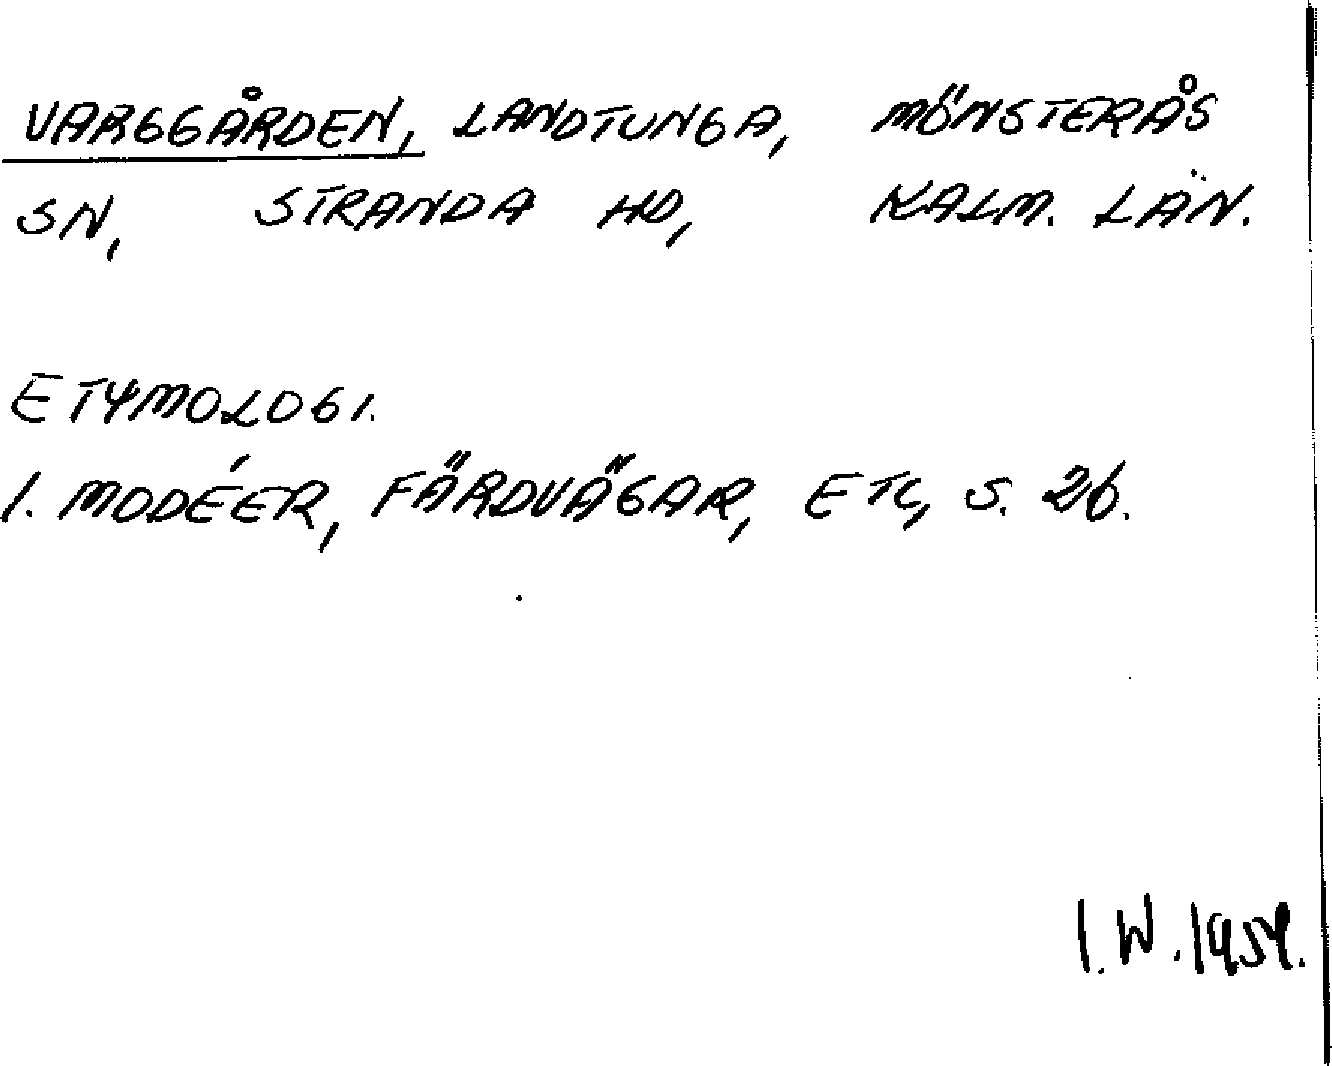 VARGGÅRDEN, LANDTUNGA, MÖNSTERÅS
SN, STRANDA HD, KALM. LÄN.
ETYMOLOGI.
I. MODÉER, FÄRDVÄGAR, ETC, S. 26.
I. W. 1954.